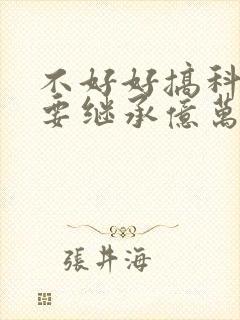 不好好搞科
要继承億萬
張井海